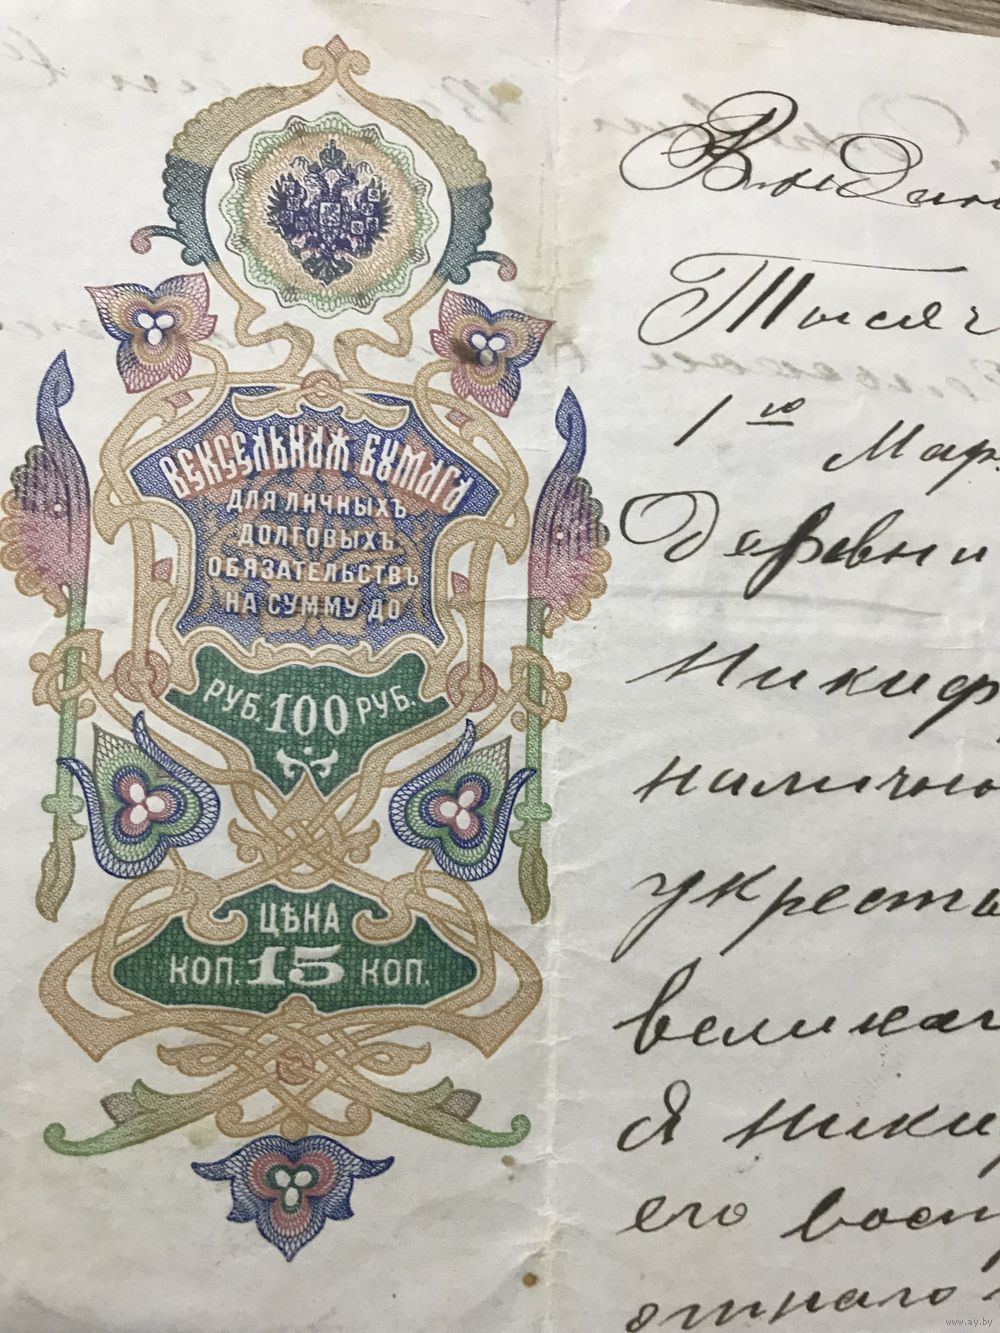 ВЕКСЕЛЬНАЯ БУМАГА
ДЛЯ ЛИЧНЫХЪ
ДОЛГОВЫХЪ
ОБЯЗАТЕЛЬСТВЪ
НА СУММУ ДО
РУБ. 100 РУБ.
ЦѢНА
КОП. 15 КОП.
Тысяч
1го Мар
Деревни
Никиф
наличн
великаг
Я Ники
его
www.ay.by